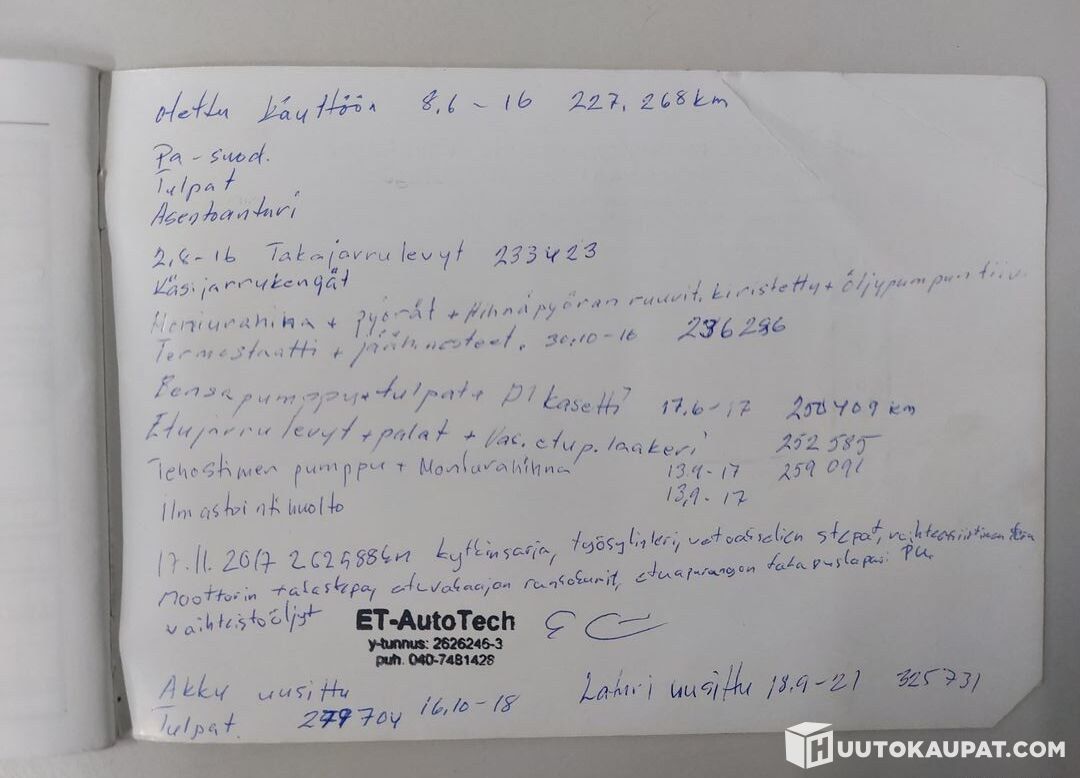 otettu käyttöön 8.6-16 227.268km
Pa-suod.
Tulpat
Asentoanturi
2.8-16 Takajarrulevyt 233423
Käsijarrukengät
Moniurahihna + pyörät + Hihnapyörän ruuvit. kiristetty + öljypumpun tiiv.
Termostaatti + jäähnesteet. 30.10-16 236296
Bensapumppu+tulpat+ DI kasetti 17.6-17 250409 km
Etujarrulevyt + palat + Vas. etup. laakeri 252 585
Tehostimen pumppu + Moniurahihna 13.9-17 259 091
Ilmastointihuolto 13.9-17
17.11.2017 km kytkinsarja, työsylinteri, vetoakselien
Moottorin etuvakaajan
vaihteistoöljyt
ET-AutoTech
y-tunnus: 2626246-3
puh. 040-7481428
Akku uusittu 16.10-18 Laturi uusittu 18.9-21 325731
Tulpat. 279704
HUUTOKAUPAT.COM